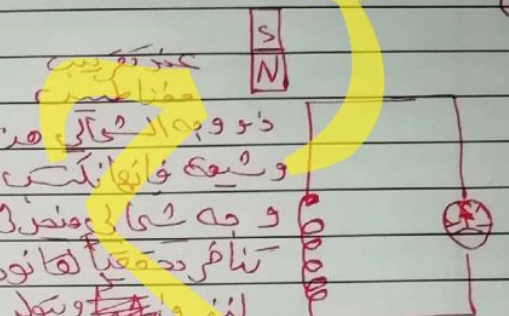 S
N
عند تقريب
مغناطيس
ذو وجه الشمالي من
وشيعة فإنها تكتسب
وجه شمالي
تناظر تحقيقاً لقانون
لنز